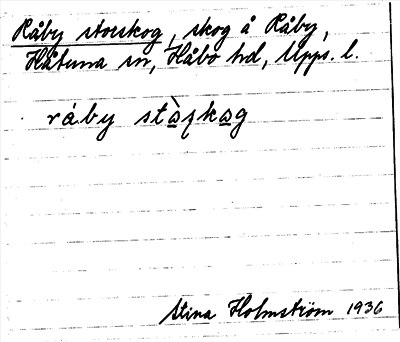 Råby storskog, skog å Råby,
Håtuna sn, Håbo hd, Upps. l.
råby stàʂkag
Stina Holmström 1936